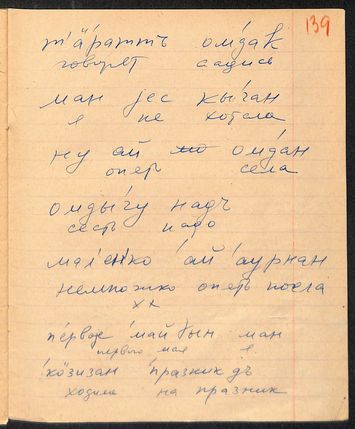 139
т'äратть омдак
говорят садись
ман jес кы́ган
я не хотела
ну ай омдан
опеть села
омды́гу надъ
сесть надо
мал'ен'ко 'ай 'аурнан
немножко опеть поела
хх
пе́рвоjе 'май дын ман
первого мая я
'кöзизан 'празник дъ
ходила на празник